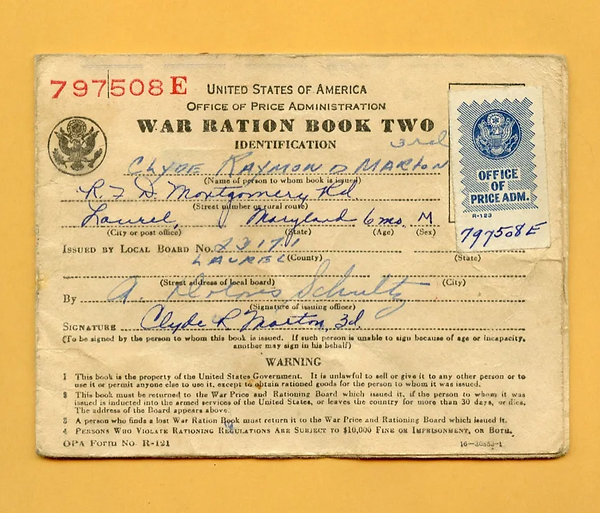 797508 E
UNITED STATES OF AMERICA
OFFICE OF PRICE ADMINISTRATION
WAR RATION BOOK TWO
IDENTIFICATION
3rd
CLYDE RAYMOND MARTON
(Name of person to whom book is issued)
R.F.D. Montgomery Rd
(Street number or rural route)
Laurel, Maryland 6 mo. M
(City or post office) (State) (Age) (Sex)
ISSUED BY LOCAL BOARD NO. 23171
LAUREL (County) (State)
(Street address of local board) (City)
By A. Dolores Schultz
(Signature of issuing officer)
SIGNATURE Clyde R Marton, 3d.
(To be signed by the person to whom this book is issued. If such person is unable to sign because of age or incapacity,
another may sign in his behalf)
WARNING
1 This book is the property of the United States Government. It is unlawful to sell or give it to any other person or to
use it or permit anyone else to use it, except to obtain rationed goods for the person to whom it was issued.
2 This book must be returned to the War Price and Rationing Board which issued it, if the person to whom it was
issued is inducted into the armed services of the United States, or leaves the country for more than 30 days, or dies.
The address of the Board appears above.
3 A person who finds a lost War Ration Book must return it to the War Price and Rationing Board which issued it.
4 PERSONS WHO VIOLATE RATIONING REGULATIONS ARE SUBJECT TO $10,000 FINE OR IMPRISONMENT, OR BOTH.
OPA FORM NO. R-121
OFFICE
OF
PRICE ADM.
R-123
797508 E